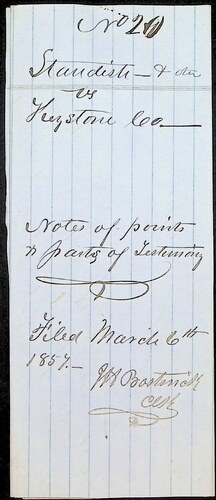 No 20
Standish - & otr
vs
Keystone Co.
Notes of points
& parts of Testimony
Filed March 6th
1857.
Bostwick
Clk